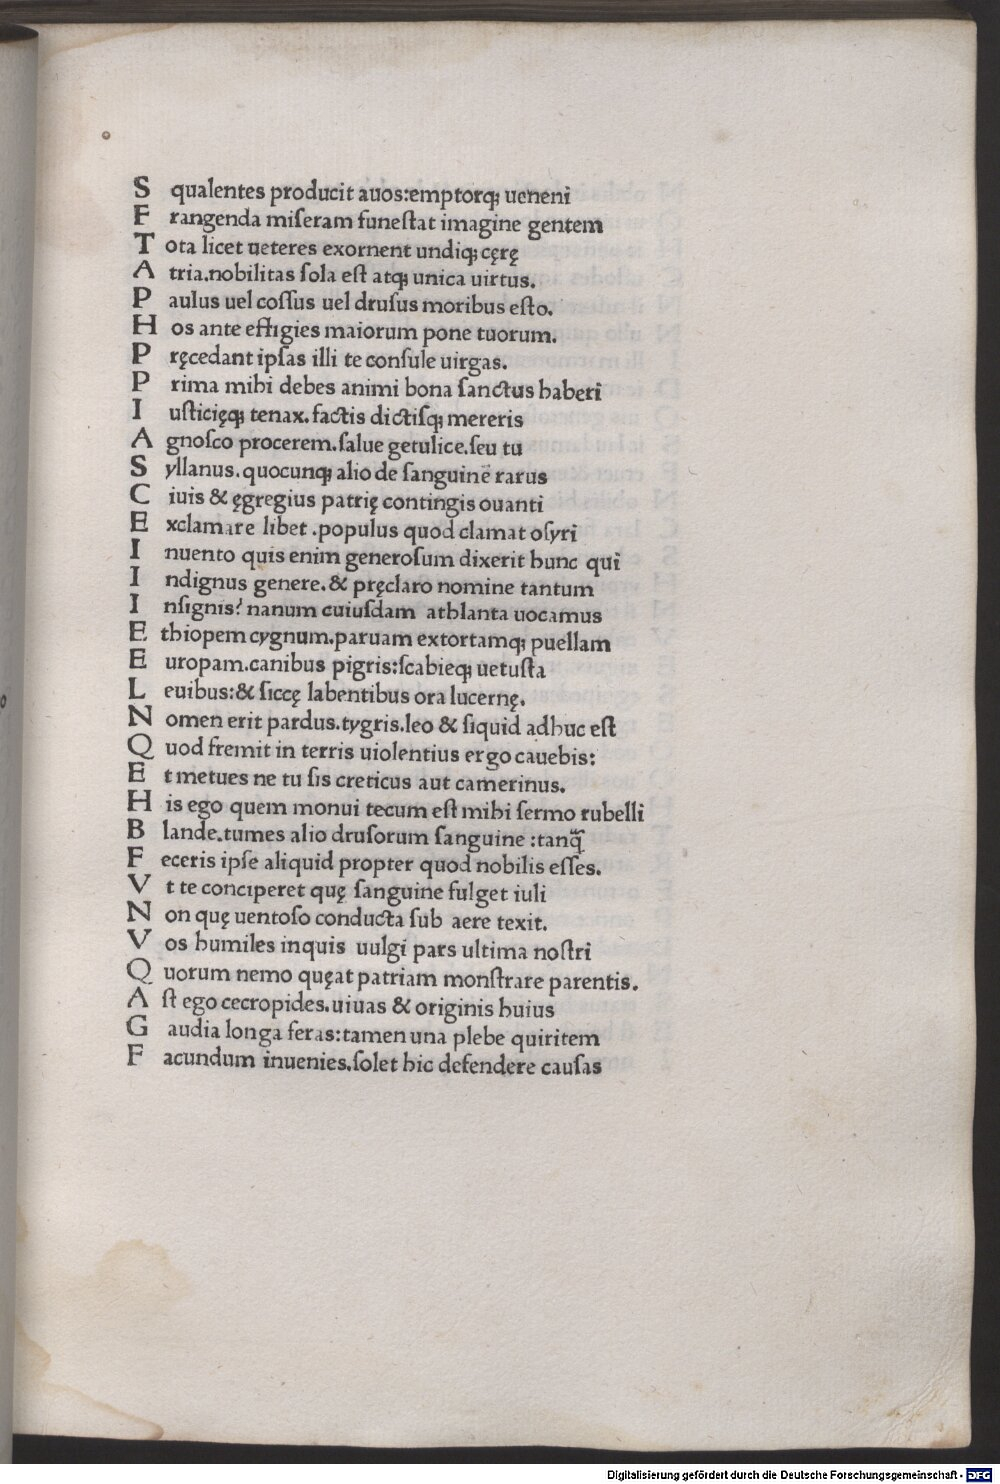 S qualentes producit avos:emptorq; ueneni
F rangenda miſeram funeſtat imagine gentem
T ota licet ueteres exornent undiq; cęrę
A tria.nobilitas ſola eſt atq; unica uirtus.
P aulus uel coſſus uel druſus moribus eſto.
H os ante effigies maiorum pone tuorum.
P ręcedant ipſas illi te conſule uirgas.
P rima mihi debes animi bona ſanctus haberi
I uſticięq; tenax. factis dictiſq; mereris
A gnoſco procerem.ſalue getulice.ſeu tu
S yllanus.quocunq; alio de ſanguinē rarus
C iuis & ęgregius patrię contingis ouanti
E xclamare libet .populus quod clamat oſyri
I nuento quis enim generoſum dixerit hunc qui
I ndignus genere.& pręclaro nomine tantum
I nſignis? nanum cuiuſdam athlanta uocamus
E thiopem cygnum.paruam extortamq; puellam
E uropam.canibus pigris:ſcabieq; uetuſta
L euibus:& ſiccę labentibus ora lucernę.
N omen erit pardus.tygris.leo & ſiquid adhuc eſt
Q uod fremit in terris uiolentius ergo cauebis:
E t metues ne tu ſis creticus aut camerinus.
H is ego quem monui tecum eſt mihi ſermo rubelli
B lande.tumes alio druſorum ſanguine :tanq̃
F eceris ipſe aliquid propter quod nobilis eſſes.
V t te conciperet quę ſanguine fulget iuli
N on quę uentoſo conducta ſub aere texit.
V os humiles inquis uulgi pars ultima noſtri
Q uorum nemo quęat patriam monſtrare parentis.
A ſt ego cecropides.uiuas & originis huius
G audia longa feras:tamen una plebe quiritem
F acundum inuenies.ſolet hic defendere cauſas
Digitalisierung gefördert durch die Deutsche Forschungsgemeinschaft - DFG